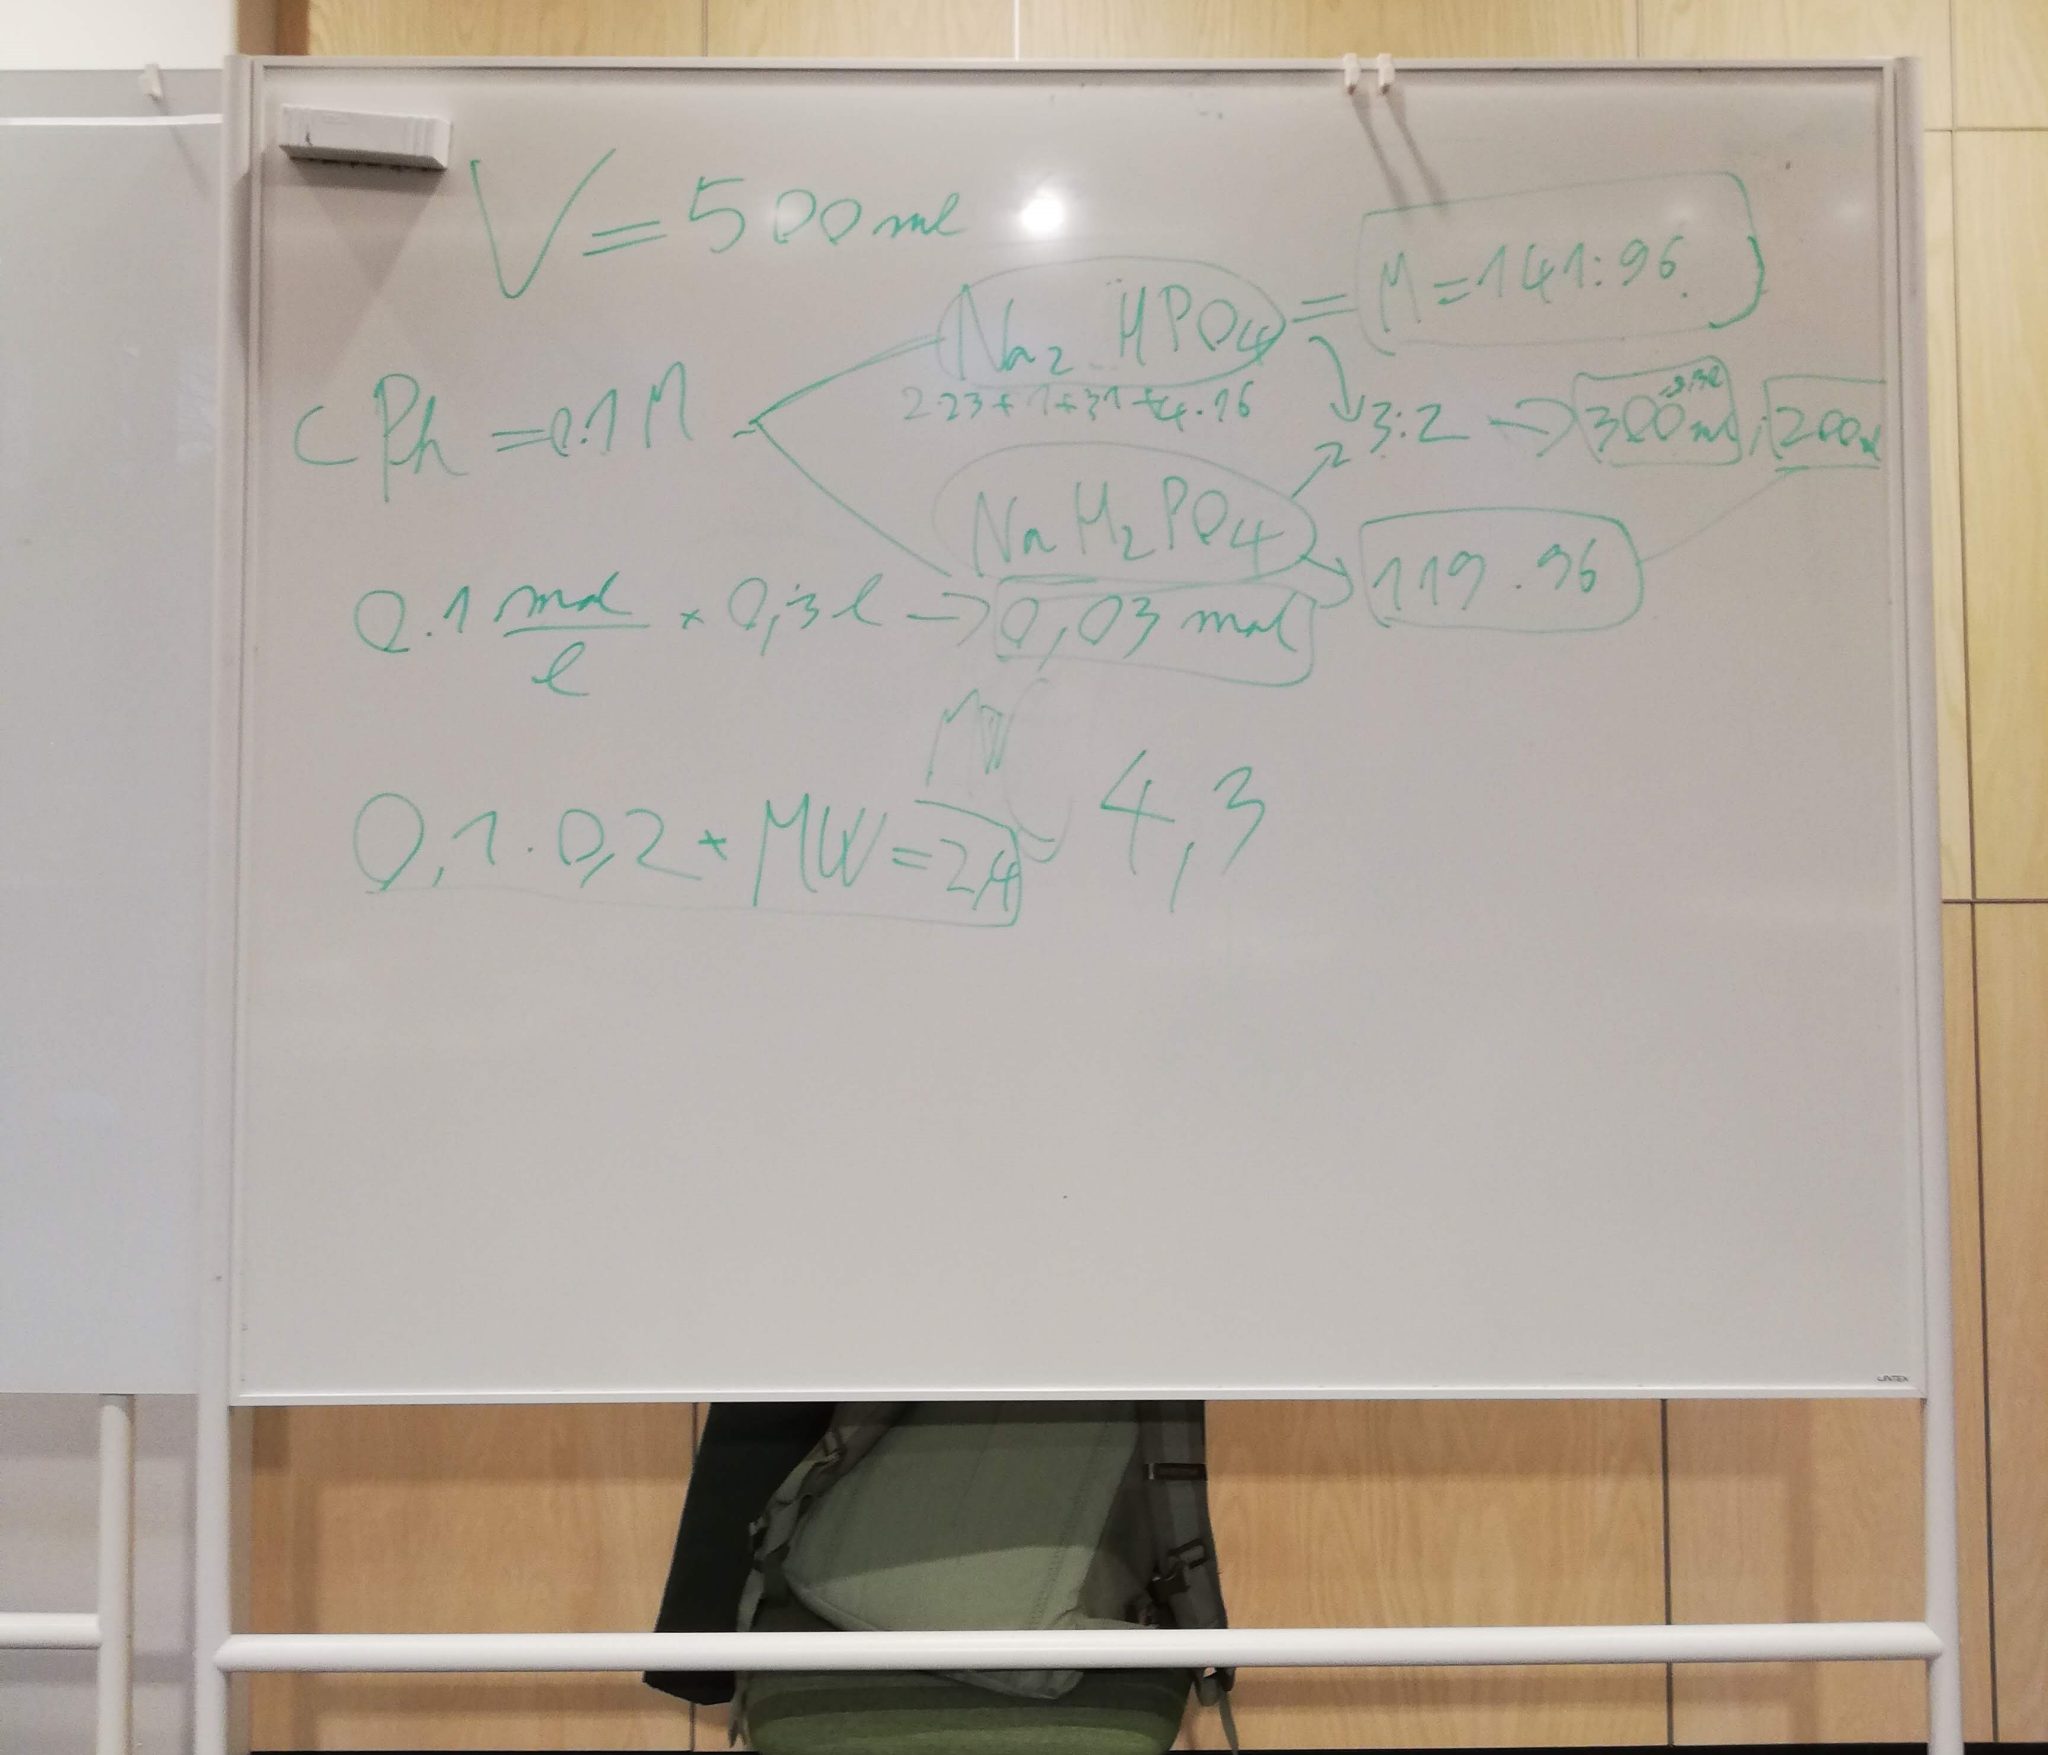 V = 500 ml
Na₂ HPO₄ = M = 141.96
2·23 + 1 + 31 + 4·16
c Ph = 0.1 M
3:2 → 300 ml, 200
NaH₂PO₄
119.96
0.1 mol/l × 0,3 l → 0,03 mol
4,3
0,1 · 0,2 * MW = 2,4
LINTEX